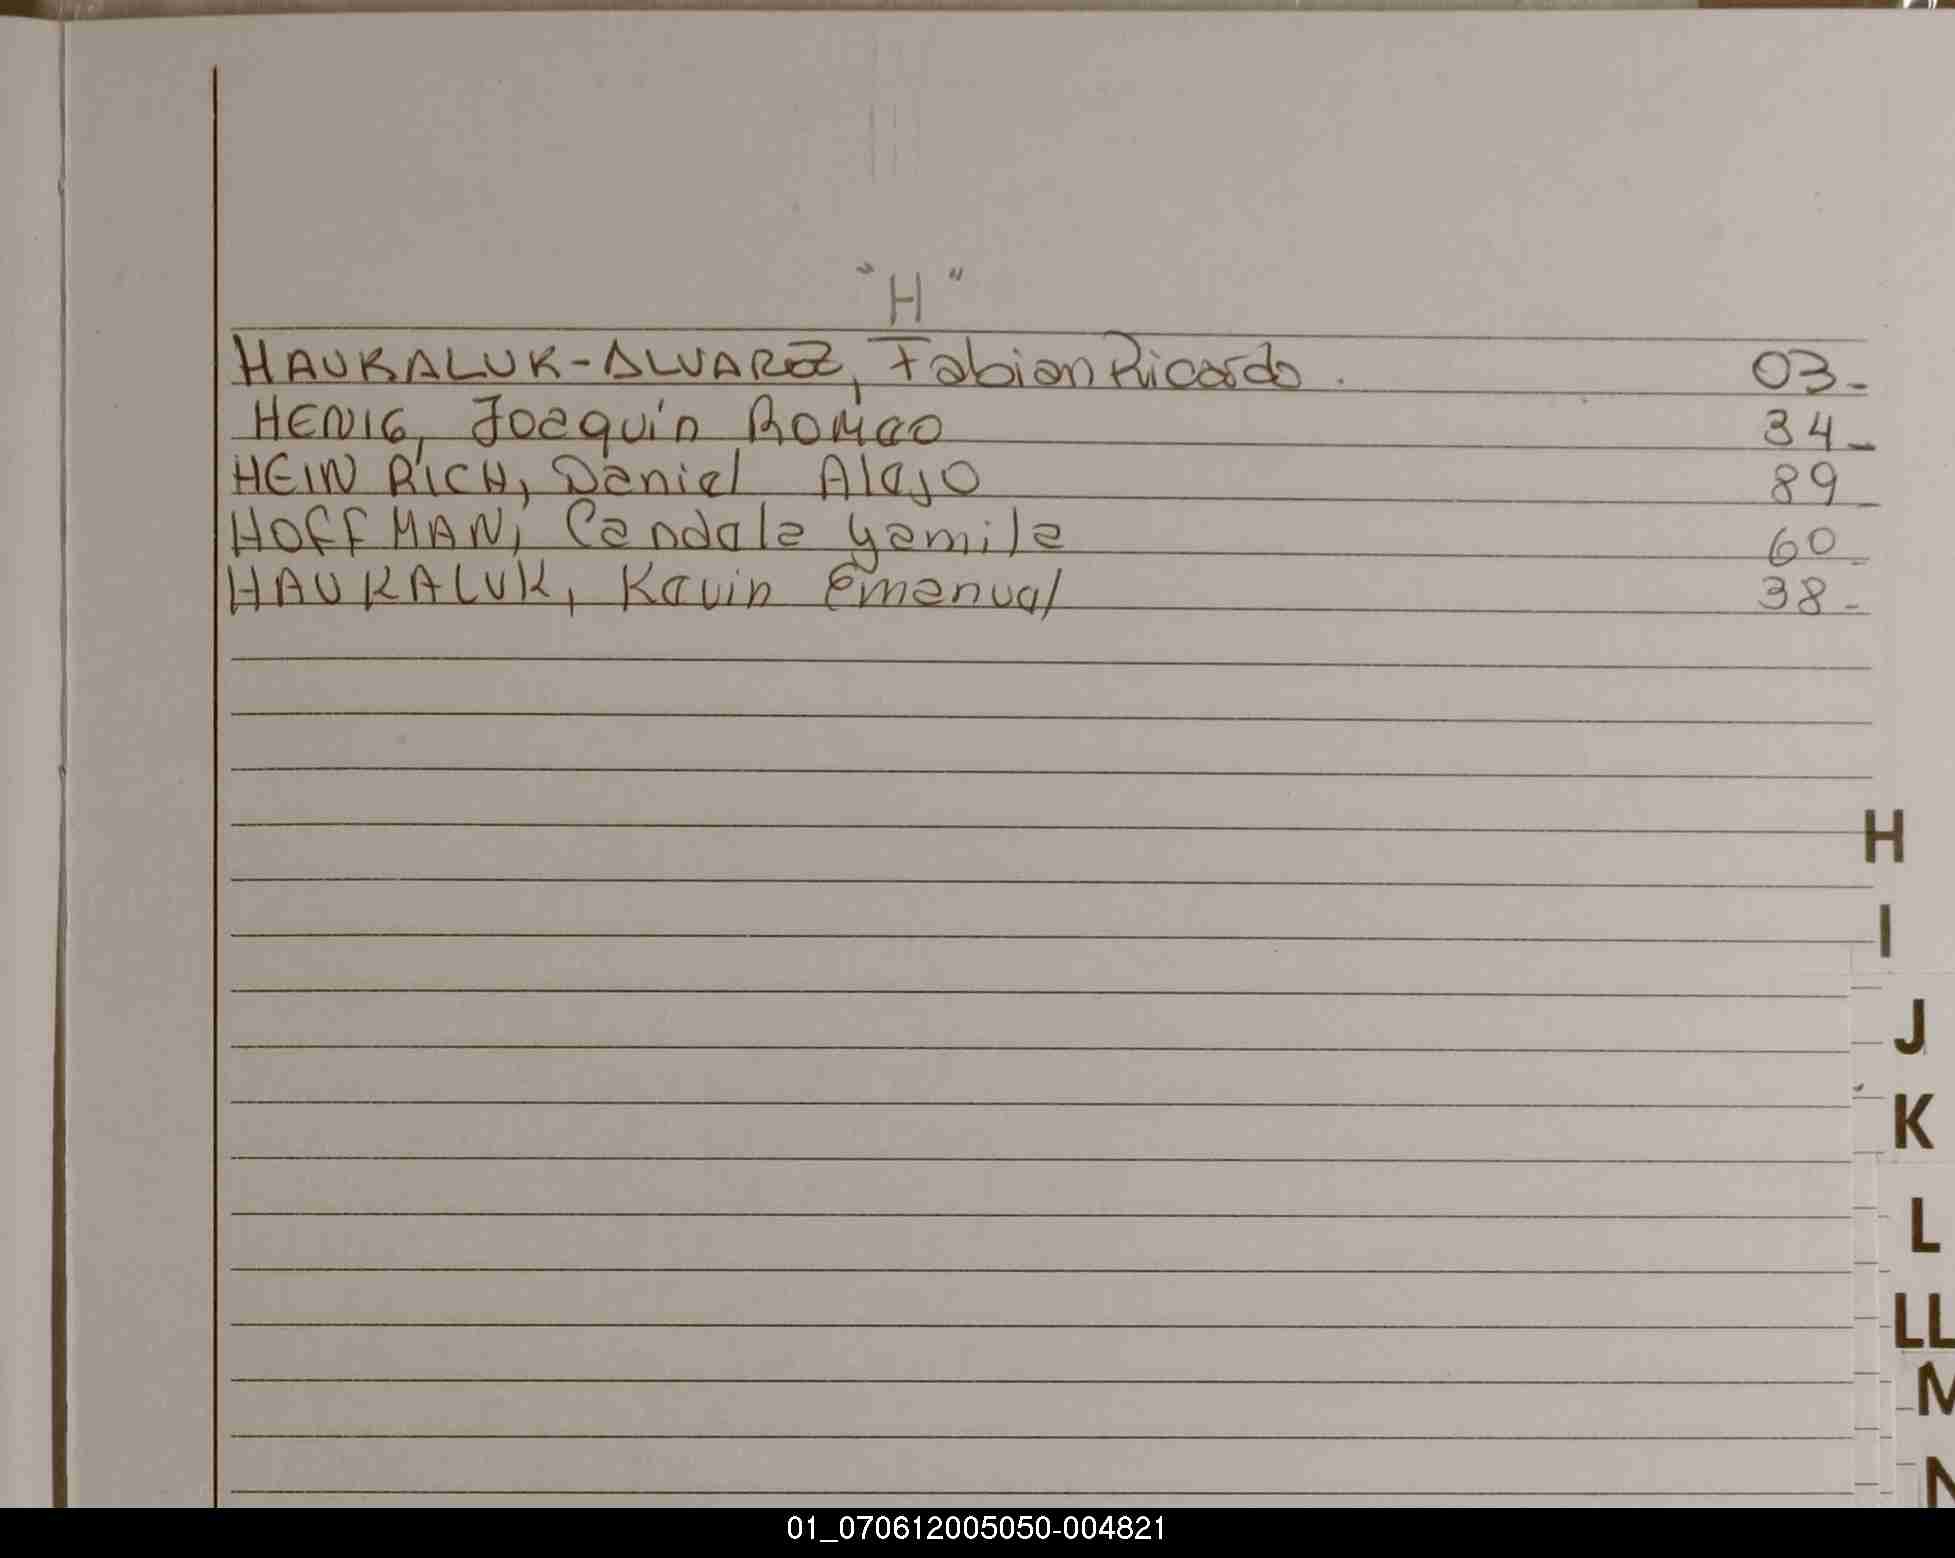 "H"
HAUKALUK-ALVAREZ, Fabian Ricardo. 03-
HENIG, Joaquín Romeo 34-
HEINRICH, Daniel Alejo 89
HOFFMAN, Candela Yamila 60-
HAUKALUK, Kevin Emanuel 38-
H
I
J
K
L
LL
M
N
01_070612005050-004821